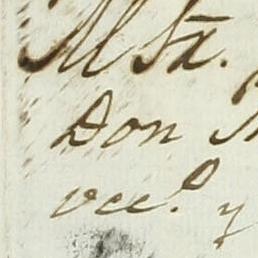 M Sx.
Don
vec.º y